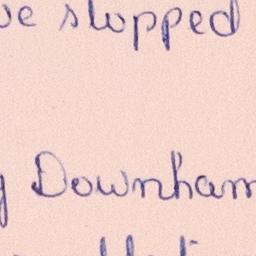 ve stopped
y Downham